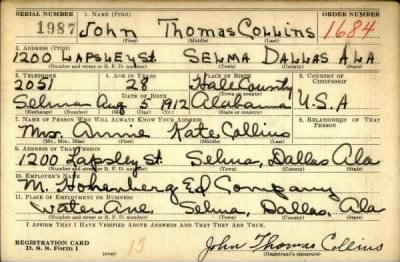 SERIAL NUMBER 1. NAME (Print) ORDER NUMBER
1987 John Thomas Collins 1684
(First) (Middle) (Last)
2. ADDRESS (Print)
1200 LAPSLEY St. SELMA DALLAS ALA
(Number and street or R. F. D. number) (Town) (County) (State)
3. TELEPHONE 4. AGE IN YEARS 5. PLACE OF BIRTH 6. COUNTRY OF CITIZENSHIP
2051 28 Hale County
DATE OF BIRTH (Town or county)
Selma Aug 5 1912 Alabama U.S.A
(Exchange) (Mo.) (Day) (Yr.) (State or country)
7. NAME OF PERSON WHO WILL ALWAYS KNOW YOUR ADDRESS 8. RELATIONSHIP OF THAT PERSON
Mrs. Annie Kate Collins
(Mr., Mrs., Miss) (First) (Middle) (Last)
9. ADDRESS OF THAT PERSON
1200 Lapsley St. Selma, Dallas Ala
(Number and street or R. F. D. number) (Town) (County) (State)
10. EMPLOYER'S NAME
M. Hohenberg Ed Company
11. PLACE OF EMPLOYMENT OR BUSINESS
Water Ave. Selma, Dallas, Ala
(Number and street or R. F. D. number) (Town) (County) (State)
I AFFIRM THAT I HAVE VERIFIED ABOVE ANSWERS AND THAT THEY ARE TRUE.
REGISTRATION CARD
D. S. S. Form 1 (over) 13 John Thomas Collins
(Registrant's signature)